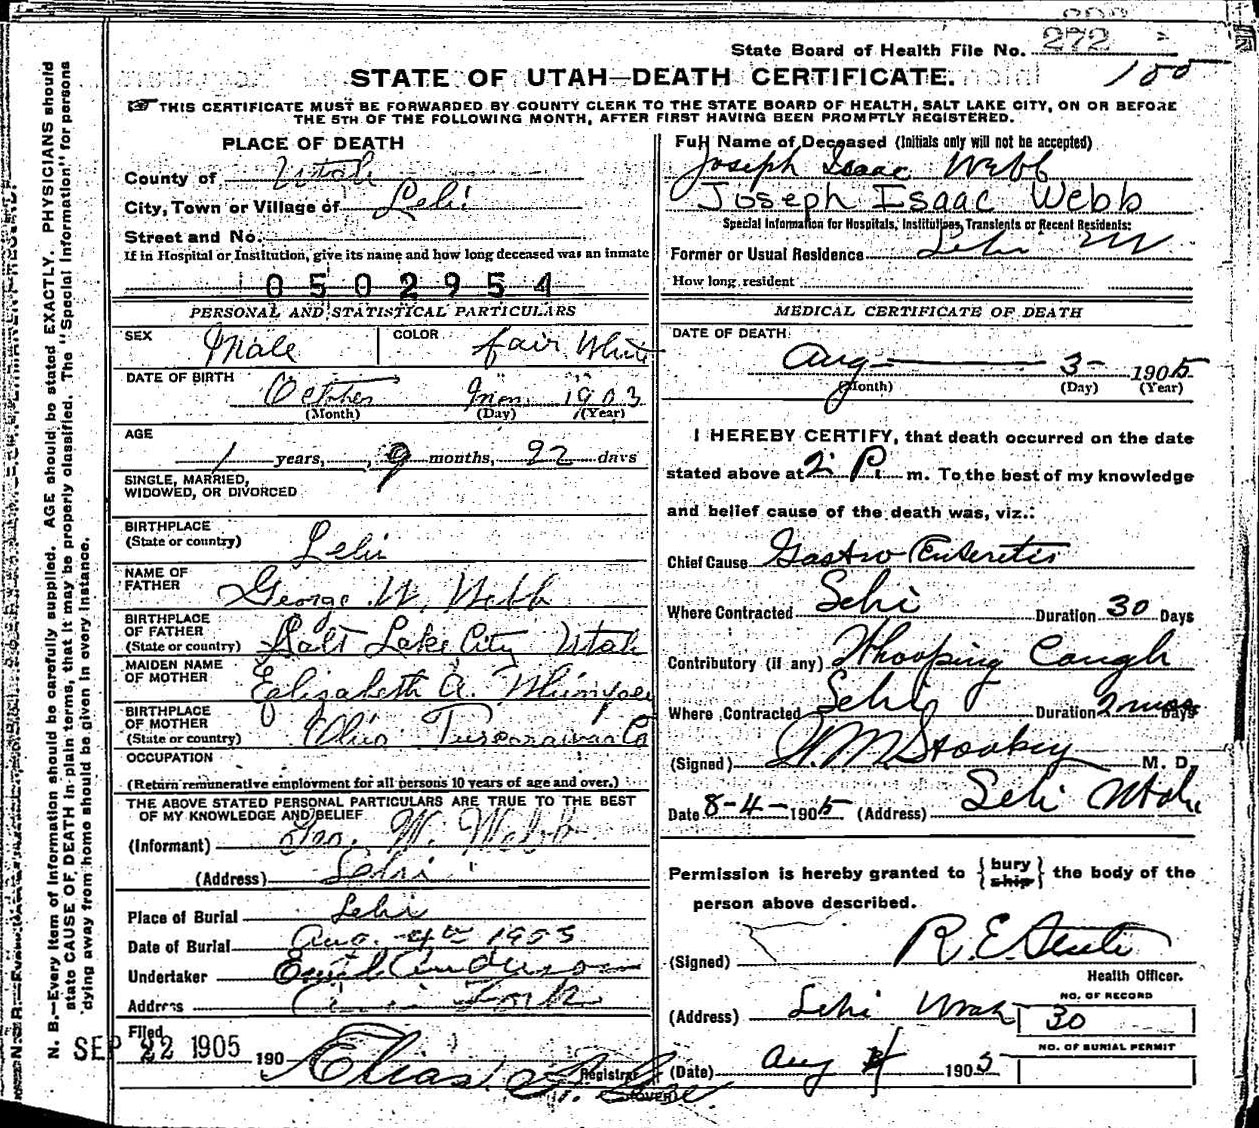 State Board of Health File No. 272
STATE OF UTAH—DEATH CERTIFICATE.
THIS CERTIFICATE MUST BE FORWARDED BY COUNTY CLERK TO THE STATE BOARD OF HEALTH, SALT LAKE CITY, ON OR BEFORE
THE 5TH OF THE FOLLOWING MONTH, AFTER FIRST HAVING BEEN PROMPTLY REGISTERED.
PLACE OF DEATH
County of Utah
City, Town or Village of Lehi
Street and No.
If in Hospital or Institution, give its name and how long deceased was an inmate
0502954
PERSONAL AND STATISTICAL PARTICULARS
SEX Male COLOR fair White
DATE OF BIRTH October 1903
(Month) (Day) (Year)
AGE
1 years, 9 months, 22 days
SINGLE, MARRIED,
WIDOWED, OR DIVORCED
BIRTHPLACE
(State or country) Lehi
NAME OF
FATHER George W. Webb
BIRTHPLACE
OF FATHER
(State or country) Salt Lake City Utah
MAIDEN NAME
OF MOTHER Eglisabeth A.
BIRTHPLACE
OF MOTHER
(State or country) Ohio Tuscarawas Co
OCCUPATION
(Return remunerative employment for all persons 10 years of age and over.)
THE ABOVE STATED PERSONAL PARTICULARS ARE TRUE TO THE BEST
OF MY KNOWLEDGE AND BELIEF
(Informant) Geo. W. Webb
(Address) Lehi
Place of Burial Lehi
Date of Burial Aug. 4th 1905
Undertaker Anderson
Address Fork
Filed
SEP 22 1905 190
Elias
Registrar
(OVER)
Full Name of Deceased (Initials only will not be accepted)
Joseph Isaac Webb
Joseph Isaac Webb
Special Information for Hospitals, Institutions, Transients or Recent Residents:
Former or Usual Residence Lehi
How long resident
MEDICAL CERTIFICATE OF DEATH
DATE OF DEATH
Aug 3 1905
(Month) (Day) (Year)
I HEREBY CERTIFY, that death occurred on the date
stated above at 2 P. m. To the best of my knowledge
and belief cause of the death was, viz.:
Chief Cause Gastro Enteretis
Where Contracted Lehi Duration 30 Days
Contributory (if any) Whooping Cough
Where Contracted Lehi Duration 2 Days
(Signed) M. D.
Date 8-4-1905 (Address) Lehi Utah
Permission is hereby granted to { bury ship } the body of the
person above described.
(Signed) R. E.
Health Officer.
(Address) Lehi Utah
NO. OF RECORD
30
NO. OF BURIAL PERMIT
(Date) Aug 4 1905
N. B.—Every item of information should be carefully supplied. AGE should be stated EXACTLY. PHYSICIANS should
state CAUSE OF DEATH in plain terms, that it may be properly classified. The "Special Information" for persons
dying away from home should be given in every instance.